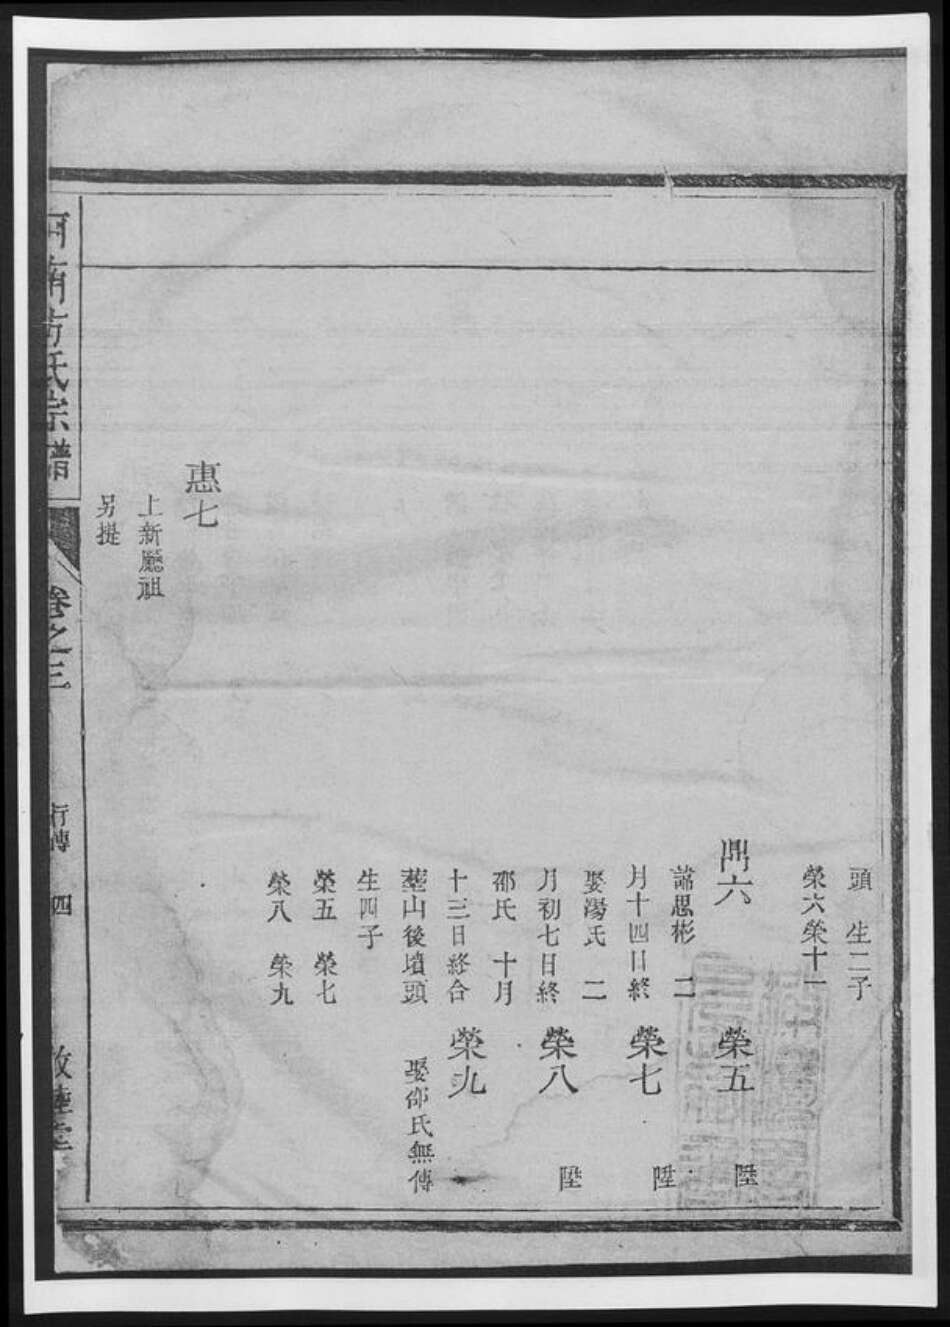 頭　生二子
榮六榮十一
鼎六
諱思彬　二
月十四日終
娶湯氏　二
月初七日終
邵氏　十月
十三日終合
塟山後墳頭
生四子
榮五　榮七
榮八　榮九
榮五　陞
榮七　陞
榮八　陞
榮九
娶邵氏無傳
惠七
上新廳祖
另提
河南方氏宗譜
卷之三
行傳　四
敦睦堂